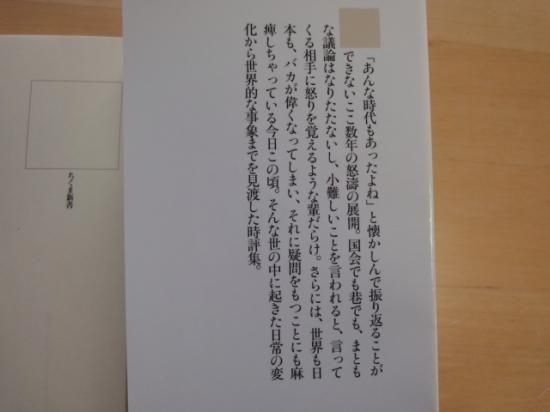 「あんな時代もあったよね」と懐かしんで振り返ることが
できないここ数年の怒濤の展開。国会でも巷でも、まとも
な議論はなりたたないし、小難しいことを言われると、言って
くる相手に怒りを覚えるような輩だらけ。さらには、世界も日
本も、バカが偉くなってしまい、それに疑問をもつことにも麻
痺しちゃっている今日この頃。そんな世の中に起きた日常の変
化から世界的な事象までを見渡した時評集。
ちくま新書